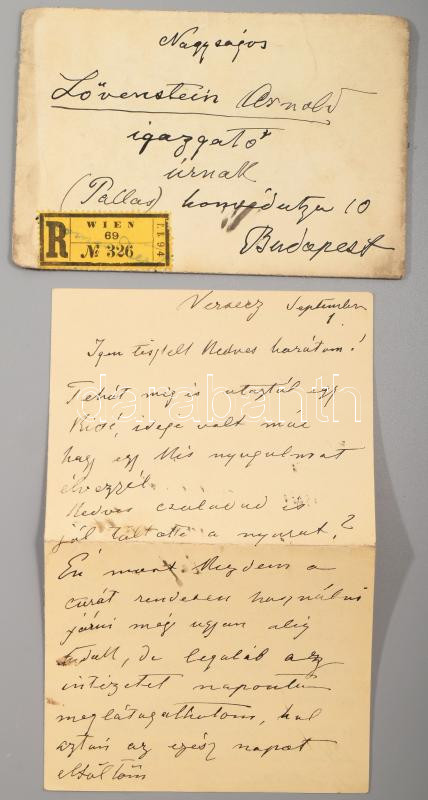 Nagyságos
Lövenstein Arnold
igazgató
úrnak
(Pallas) honvédutza 10
Budapest
R WIEN
69
№ 326
Versecz September
1.
Igen tisztelt Kedves barátom!
Tehát mégis utaztál egy
kicsit, ideje volt már
hogy egy kis nyugalmat
élvezzél.
Kedves családod is
jól töltötte a nyarat?
Én most kezdem a
curát rendesen használni
járni még ugyan alig
tudok, de legaláb azz
intézetet naponta
meglátogathatom, hol
aztán az egész napot
eltöltöm
darabanth